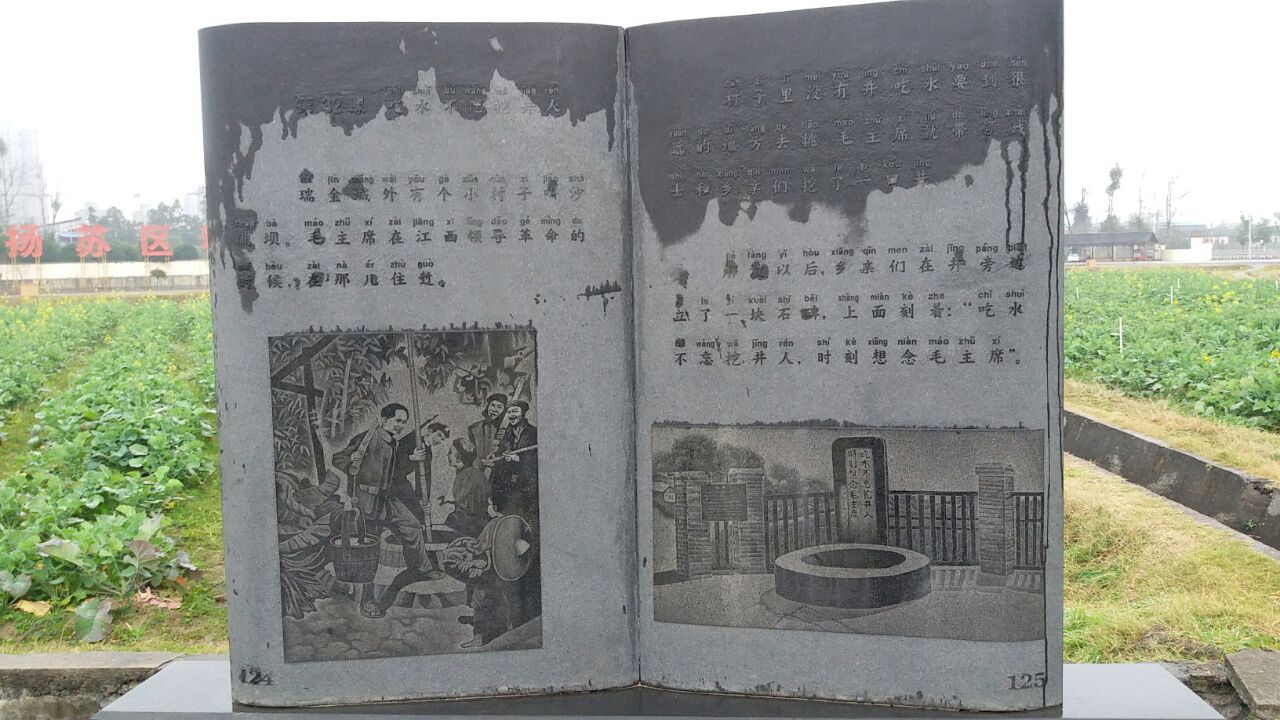 chī shuǐ bú wàng wā jǐng rén
课 吃水不忘挖井人
jīn chéng wài yǒu gè xiǎo cūn zi jiào shā
瑞金城外有个小村子叫沙
bà máo zhǔ xí zài jiāng xī lǐng dǎo gé mìng de
洲坝。毛主席在江西领导革命的
hòu zài nà ér zhù guò
时候,在那儿住过。
124
cūn zi lǐ méi yǒu jǐng chī shuǐ yào dào hěn
村子里没有井。吃水要到很
yuǎn de dì fāng qù tiāo máo zhǔ xí jiù dài lǐng zhàn
远的地方去挑。毛主席就带领战
shì hé xiāng qīn men wā le yì kǒu jǐng
士和乡亲们挖了一口井。
jiě fàng yǐ hòu xiāng qīn men zài jǐng páng biān
解放以后,乡亲们在井旁边
le yí kuài shí bēi shàng miàn kè zhe chī shuǐ
立了一块石碑,上面刻着:“吃水
wàng wā jǐng rén shí kè xiǎng niàn máo zhǔ xí
不忘挖井人,时刻想念毛主席”。
吃水不忘挖井人
时刻想念毛主席
125
扬苏区